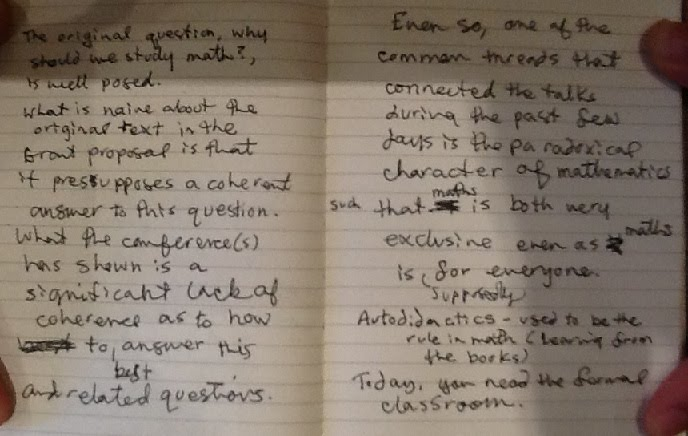 The original question, why
should we study math?,
is well posed.
What is naive about the
original text in the
Grant proposal is that
it pressupposes a coherent
answer to this question.
What the conference(s)
has shown is a
significant lack of
coherence as to how
to, answer this
best
and related questions.
Even so, one of the
common threads that
connected the talks
during the past few
days is the paradoxical
character of mathematics
maths
such that is both very
exclusive even as maths
is, for everyone.
supposedly
Autodidactics - used to be the
rule in math (learning from
the books)
Today, you need the formal
classroom.